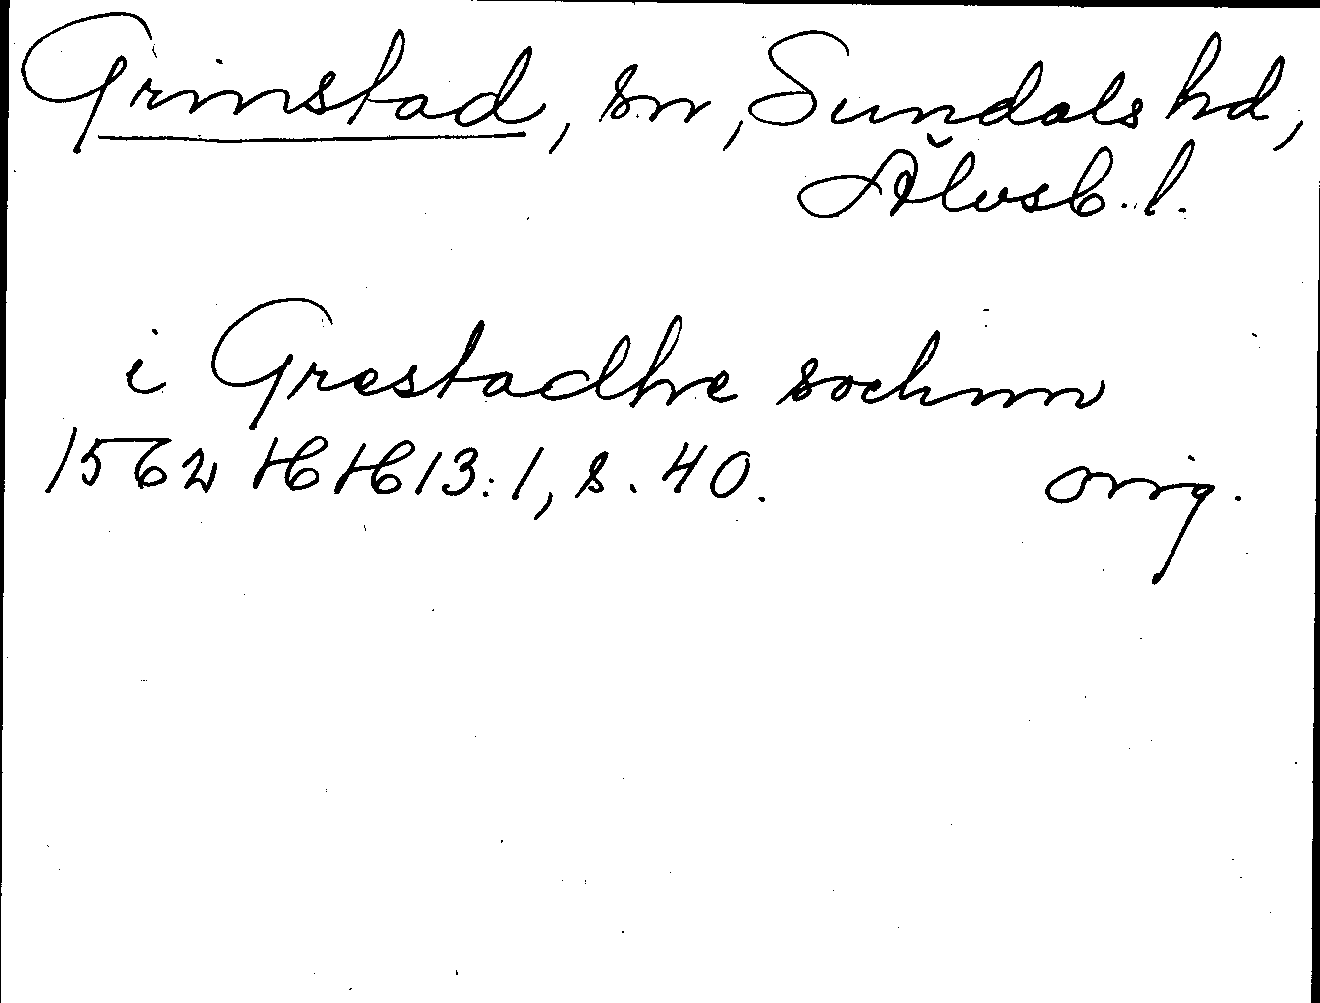 Grinstad, sn, Sundals hd,
Älvsb. l.
i Grestadhe sochnn
1562 HH 13:1, s. 40. orig.